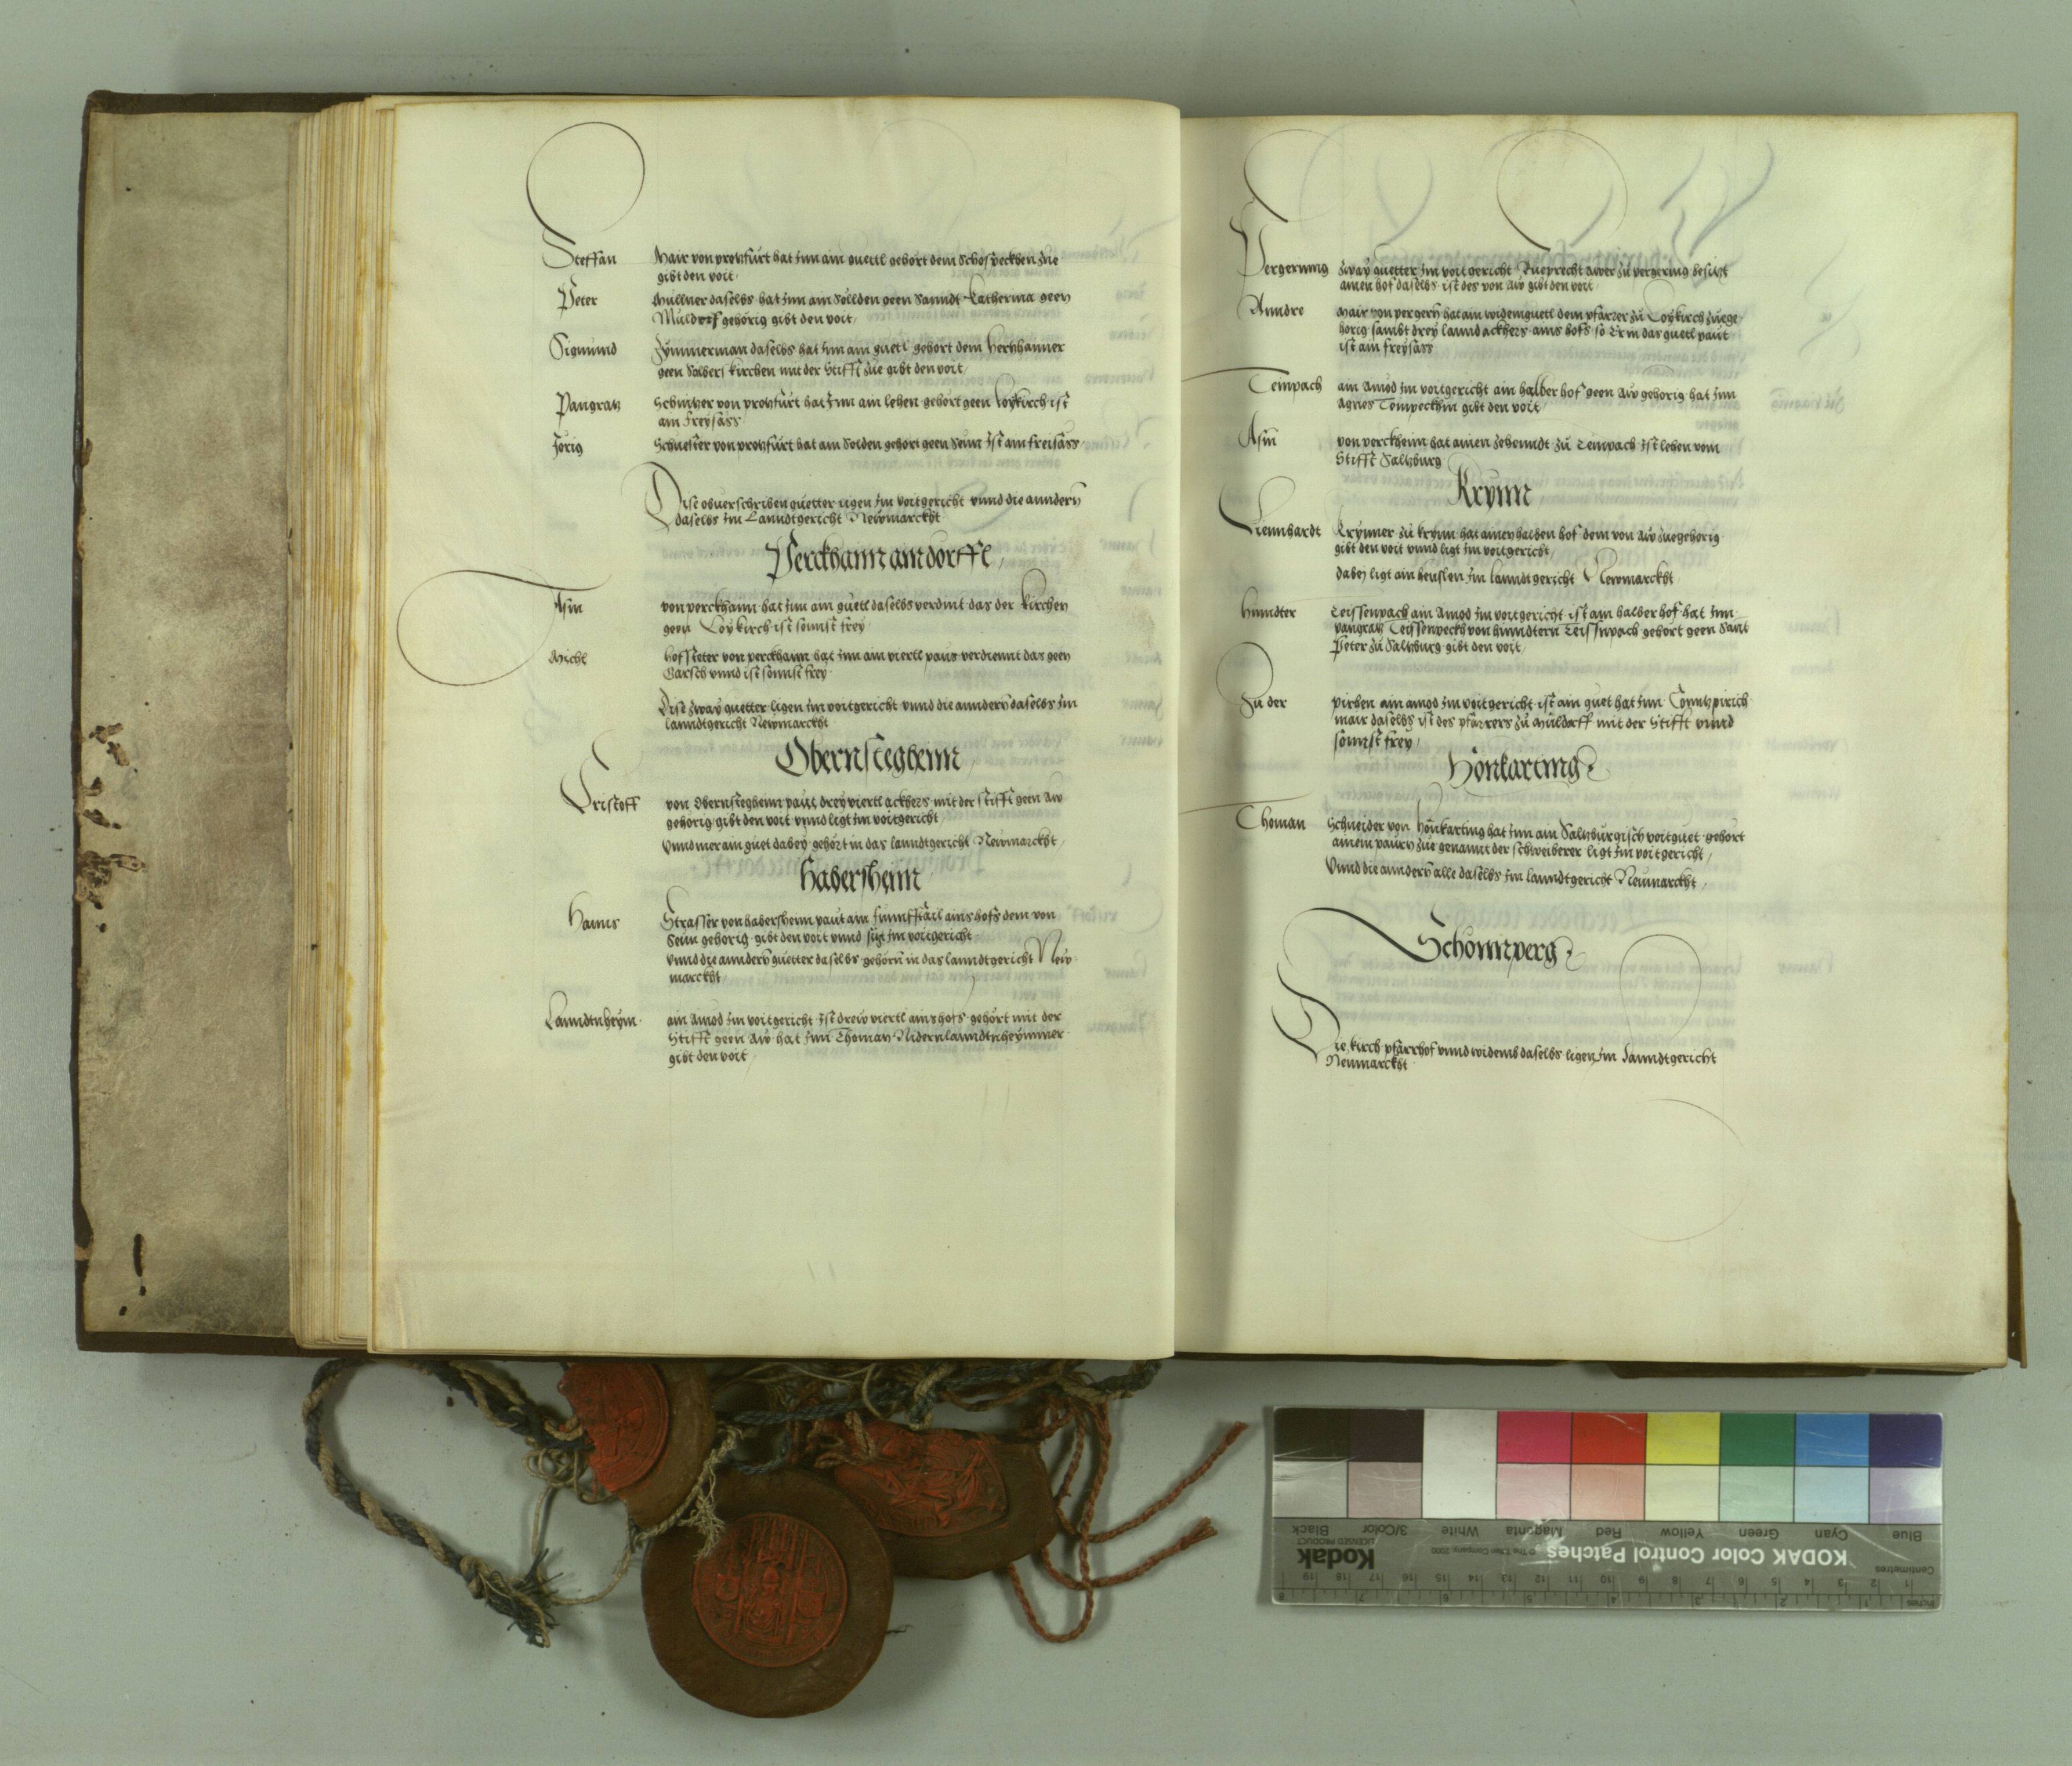 Steffan Mair von prohfurt hat Inn ain guettl gehort dem Schospeckhen zue
gibt den voit
Peter Mullner daselbs hat Inn ain Sollden geen Sanndt Katherina geen
Muldorf gehorig gibt den voit
Sigmund Zymmerman daselbs hat Inn ain guetl gehort dem
geen kirchen mit der Stifft zue gibt den voit
Pangratz von prohfurt hat Inn ain lehen gehort geen Loykirch ist
ain freysass
Jorig Schuester von prohfurt hat ain Solden gehort geen Seun Ist ain freisass
Dise obuerschriben guetter ligen Im voitgericht vnnd die anndern
daselbs Im Lanndtgericht Newmarckht
Perckhann am dorffl
Asm von perckhann hat Inn ain guetl daselbs verdint das der kirchen
geen Loykirch ist sonnst frey
Michl Hofsteter von perckhann hat Inn ain viertl paus verdiennt das geen
Garsch vnnd ist sonnst frey
Dise zway guetter ligen Im voitgericht vnnd die anndern daselbs Im
lanndtgericht Newmarckht
Obernstegheim
Cristoff von Obernstegheim paut drey viertl ackhers mit der stifft geen Aw
gehorig gibt den voit vnnd ligt Im voitgericht
Vnnd mer ain guet dabey gehort in das lanndtgericht Newmarckht
Habersheim
Hanns Strasser von habersheim paut ain funnfftail ains hofs dem von
Seun gehorig gibt den voit vnnd ligt Im voitgericht
Vnnd die anndern guetter daselbs gehorn in das lanndtgericht New
marckht
Lanndtnheym ain Amod Im voitgericht Ist drew viertl ains hofs gehort mit der
Stifft geen Aw hat Inn Thoman Nidernlanndtnheymmer
gibt den voit
Pergerung zway guetter Im voitgericht Rueprecht zu pergering besitzt
ainen hof daselbs ist des von Aw gibt den voit
Anndre Mair von pergern hat ain widemguetl dem pfarrer zu Loykirch zuege
horig sambt drey lannd ackhers ains hofs so Er in das guetl paut
ist ain freysass
Tempach ain Amod Im voitgericht ain halber hof geen Aw gehorig hat Inn
Agnes Tempeckhin gibt den voit
Asm von perckheim hat ainen zehenndt zu Tempach Ist lehen vom
Stifft Saltzburg
Krynn
Liennhardt Krynner zu krynn hat ainen halben hof dem von Aw zuegehorig
gibt den voit vnnd ligt Im voitgericht
dabey ligt ain heuslen Im lanndtgericht Newmarckht
Hinndter Teissenpach ain Amod Im voitgericht ist ain halber hof hat Inn
pangratz Teissenpeckh von hinndtern Teissnpach gehort geen Sant
Peter zu Saltzburg gibt den voit
Zu der pirhen ain amod Im voitgericht ist ain guet hat Inn
mair daselbs ist des pfarrers zu Muldorff mit der Stifft vnnd
sonnst frey
Honkarting
Thoman Schneider von Honkarting hat Inn ain Saltzburgisch voitguet gehort
ainem paurn zue genannt der ligt Im voitgericht
Vnnd die anndern alle daselbs Im lanndtgericht Neumarckht
Schonnperg
Die kirch pfarrhof vnnd widemb daselbs ligen Im Lanndtgericht
Neumarckht
Blue Cyan Green Yellow Red Magenta White 3/Color Black
KODAK Color Control Patches
Kodak
LICENSED PRODUCT
© The Tiffen Company, 2000
Centimetres
1 2 3 4 5 6 7 8 9 10 11 12 13 14 15 16 17 18 19
Inches
1 2 3 4 5 6 7 8